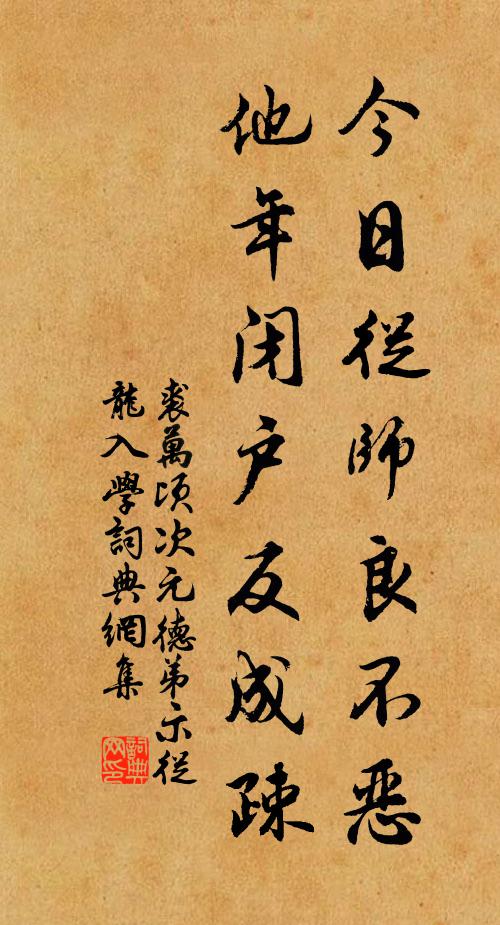 今日從師良不惡
他年閉戶反成疎
裘萬頃次元德弟示從
龍入學詞典網集
詞典网印